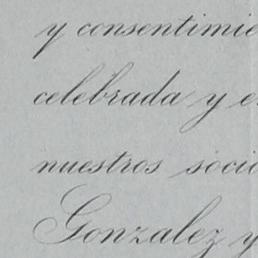 y consentimie
celebrada y e
nuestros socio
Gonzalez y